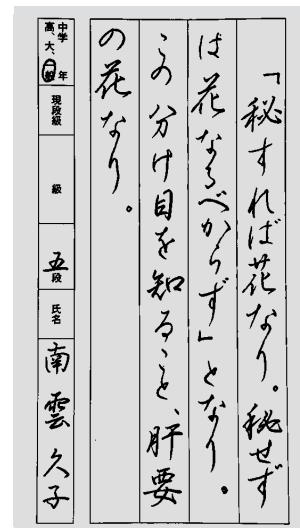 「秘すれば花なり。秘せず
は花なるべからず」となり。
この分け目を知ること、肝要
の花なり。
中学 高、大、一般 年 現段級 級 五段 氏名 南雲久子